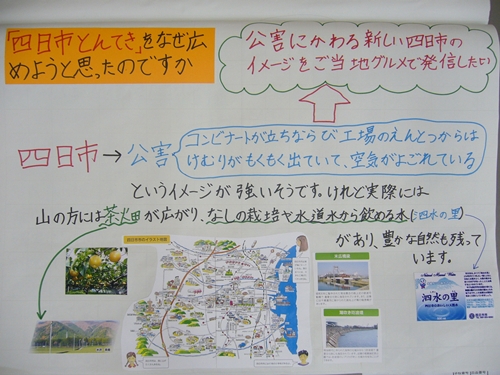 「四日市とんてき」をなぜ広
めようと思ったのですか
公害にかわる新しい四日市の
イメージをご当地グルメで発信したい
四日市→公害
コンビナートが立ちならび工場のえんとつからは
けむりがもくもく出ていて、空気がよごれている
というイメージが強いそうです。けれど実際には
山の方には茶畑が広がり、なしの栽培や水道水から飲める水(泗水の里)
があり、豊かな自然も残って
います。
泗水の里